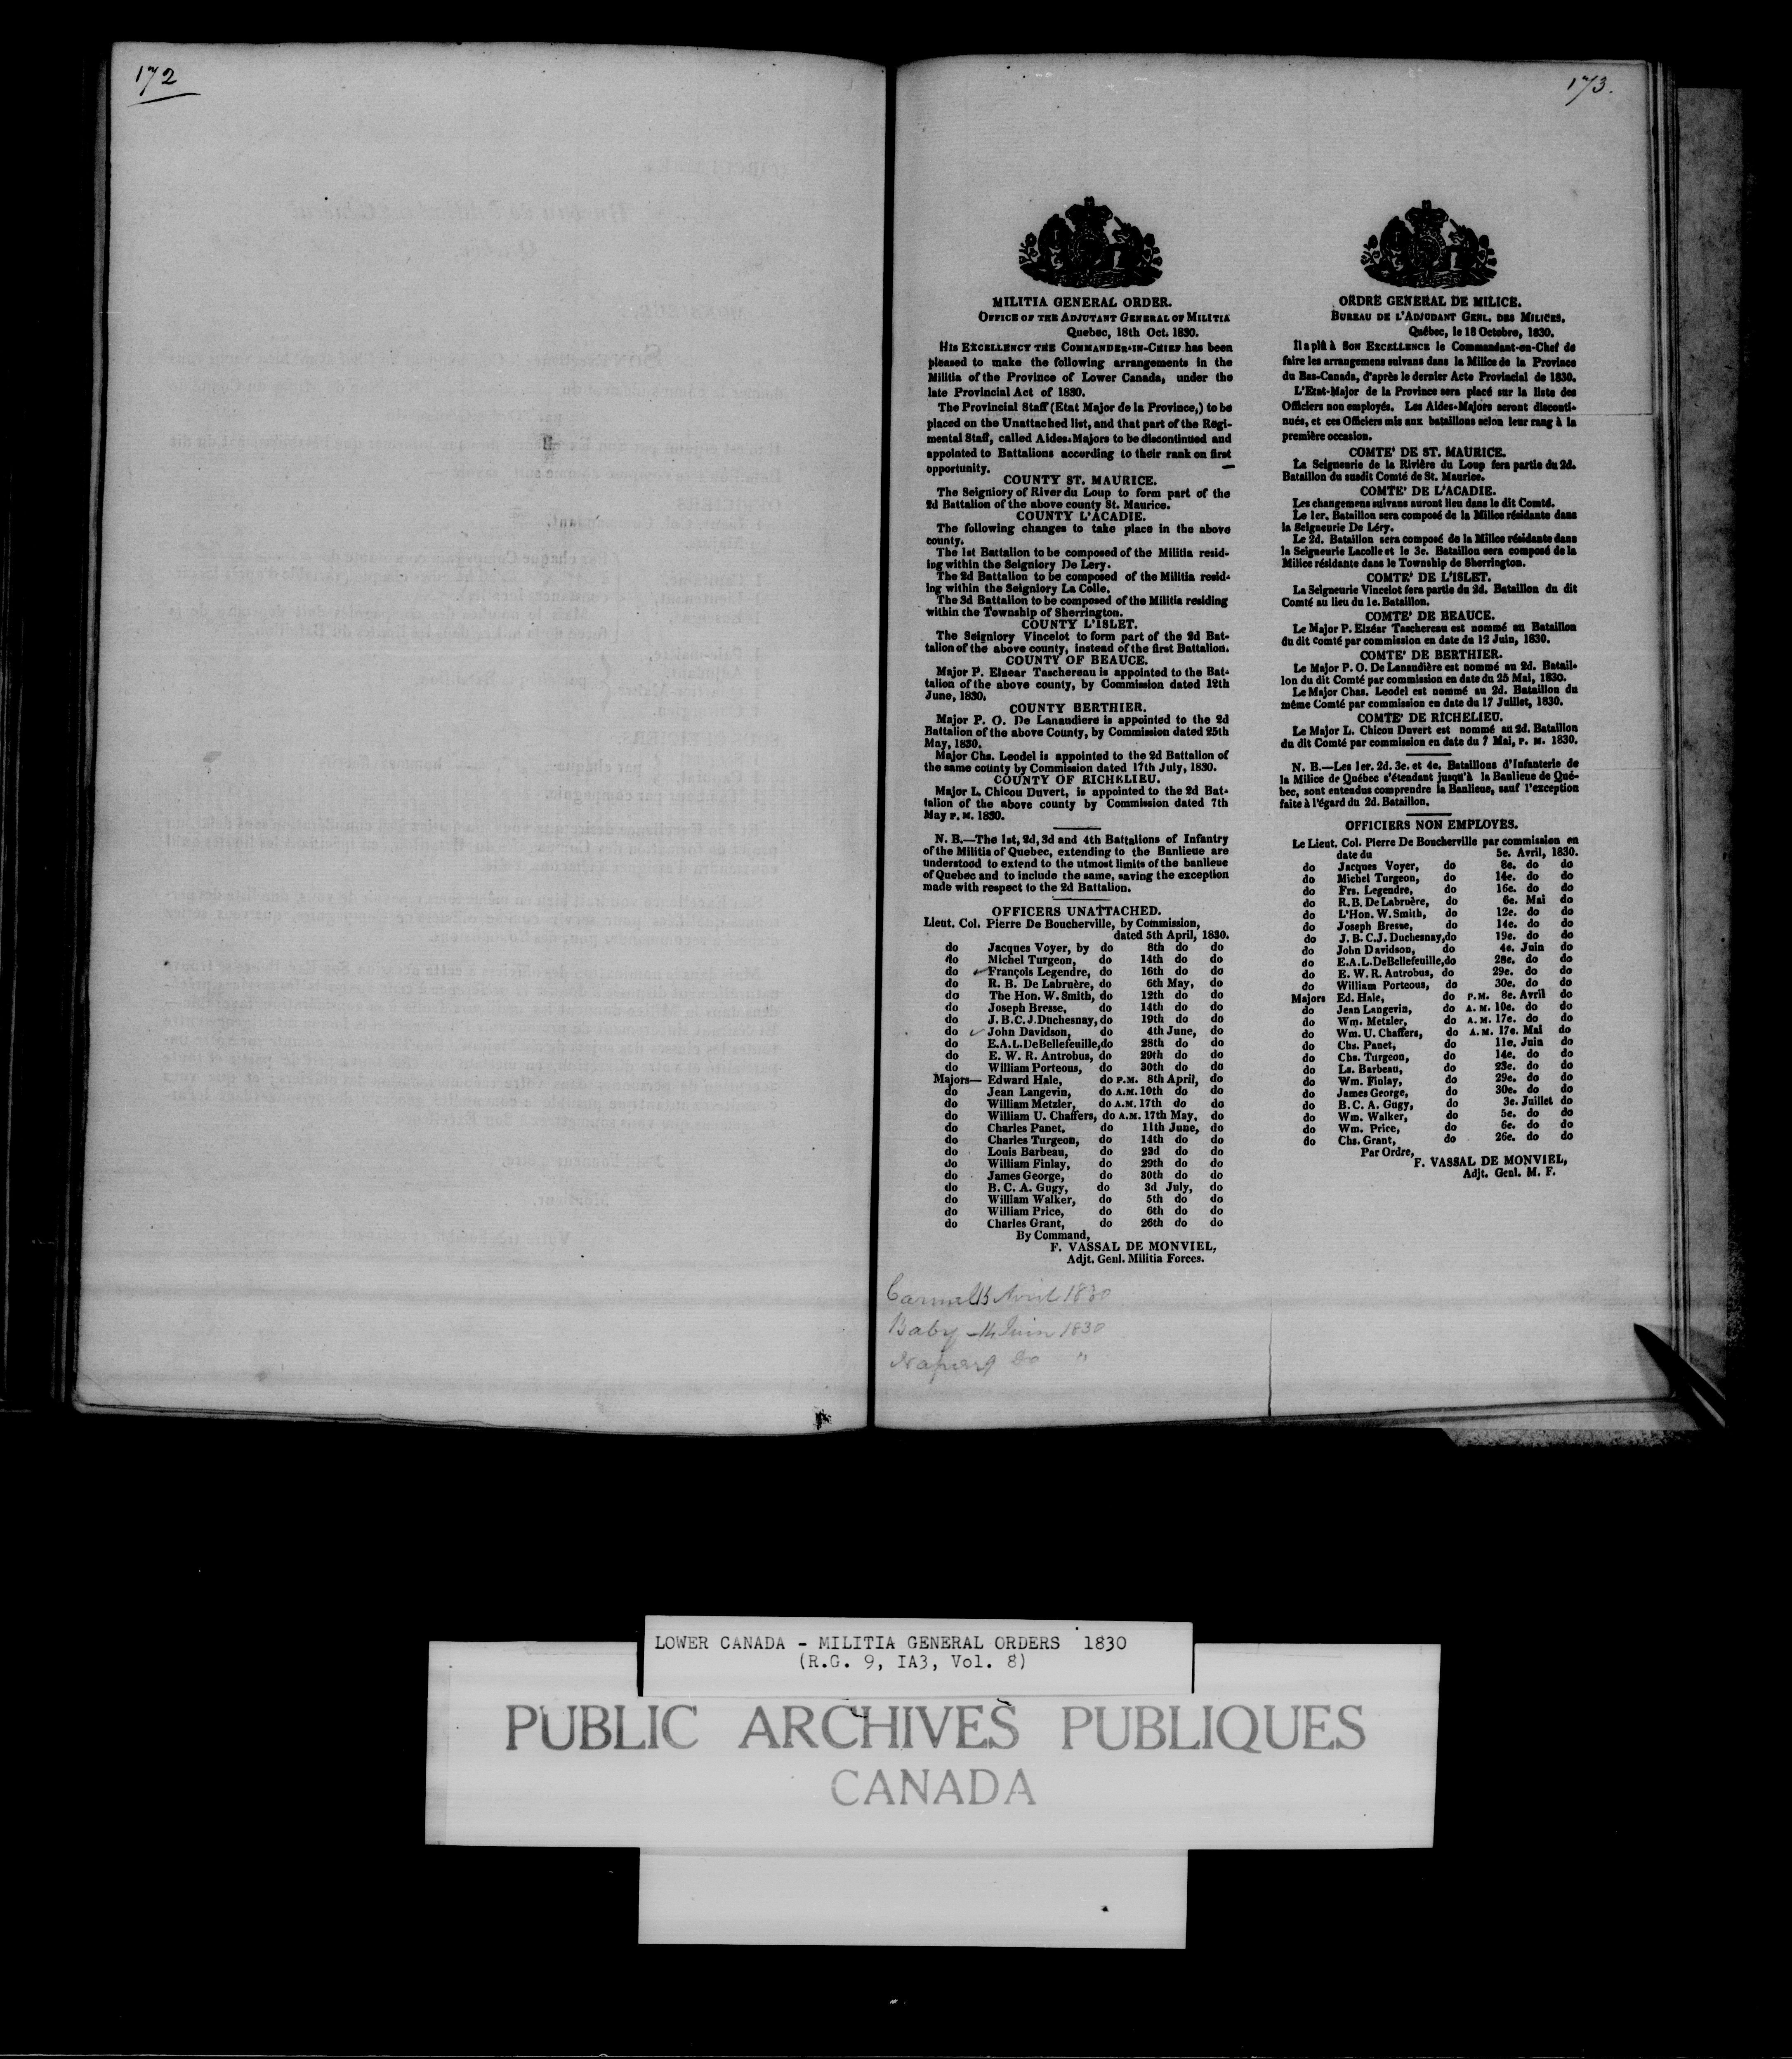 172
173.
MILITIA GENERAL ORDER.
OFFICE OF THE ADJUTANT GENERAL OF MILITIA
Quebec, 18th Oct. 1830.
HIS EXCELLENCY THE COMMANDER-IN-CHIEF has been
pleased to make the following arrangements in the
Militia of the Province of Lower Canada, under the
late Provincial Act of 1830.
The Provincial Staff (Etat Major de la Province,) to be
placed on the Unattached list, and that part of the Regi-
mental Staff, called Aides-Majors to be discontinued and
appointed to Battalions according to their rank on first
opportunity.
COUNTY ST. MAURICE.
The Seigniory of River du Loup to form part of the
2d Battalion of the above county St. Maurice.
COUNTY L'ACADIE.
The following changes to take place in the above
county.
The 1st Battalion to be composed of the Militia resid-
ing within the Seigniory De Lery.
The 2d Battalion to be composed of the Militia resid-
ing within the Seigniory La Colle.
The 3d Battalion to be composed of the Militia residing
within the Township of Sherrington.
COUNTY L'ISLET.
The Seigniory Vincelot to form part of the 2d Bat-
talion of the above county, instead of the first Battalion.
COUNTY OF BEAUCE.
Major P. Elzear Taschereau is appointed to the Bat-
talion of the above county, by Commission dated 12th
June, 1830.
COUNTY BERTHIER.
Major P. O. De Lanaudiere is appointed to the 2d
Battalion of the above County, by Commission dated 25th
May, 1830.
Major Chs. Leodel is appointed to the 2d Battalion of
the same county by Commission dated 17th July, 1830.
COUNTY OF RICHELIEU.
Major L. Chicou Duvert, is appointed to the 2d Bat-
talion of the above county by Commission dated 7th
May P. M. 1830.
N. B.—The 1st, 2d, 3d and 4th Battalions of Infantry
of the Militia of Quebec, extending to the Banlieue are
understood to extend to the utmost limits of the banlieue
of Quebec and to include the same, saving the exception
made with respect to the 2d Battalion.
OFFICERS UNATTACHED.
Lieut. Col. Pierre De Boucherville, by Commission,
dated 5th April, 1830.
do Jacques Voyer, by do 8th do do
do Michel Turgeon, do 14th do do
do François Legendre, do 16th do do
do R. B. De Labruère, do 6th May, do
do The Hon. W. Smith, do 12th do do
do Joseph Bresse, do 14th do do
do J. B. C. J. Duchesnay, do 19th do do
do John Davidson, do 4th June, do
do E.A.L.DeBellefeuille, do 28th do do
do E. W. R. Antrobus, do 29th do do
do William Porteous, do 30th do do
Majors— Edward Hale, do P.M. 8th April, do
do Jean Langevin, do A.M. 10th do do
do William Metzler, do A.M. 17th do do
do William U. Chaffers, do A.M. 17th May, do
do Charles Panet, do 11th June, do
do Charles Turgeon, do 14th do do
do Louis Barbeau, do 23d do do
do William Finlay, do 29th do do
do James George, do 30th do do
do B. C. A. Gugy, do 3d July, do
do William Walker, do 5th do do
do William Price, do 6th do do
do Charles Grant, do 26th do do
By Command,
F. VASSAL DE MONVIEL,
Adjt. Genl. Militia Forces.
15 Avril 1830
Baby 14 Juin 1830
do "
ORDRE GENERAL DE MILICE.
BUREAU DE L'ADJUDANT GENL. DES MILICES.
Québec, le 18 Octobre, 1830.
Il a plû à SON EXCELLENCE le Commandant-en-Chef de
faire les arrangemens suivans dans la Milice de la Province
du Bas-Canada, d'après le dernier Acte Provincial de 1830.
L'Etat-Major de la Province sera placé sur la liste des
Officiers non employés. Les Aides-Majors seront disconti-
nués, et ces Officiers mis aux bataillons selon leur rang à la
première occasion.
COMTE' DE ST. MAURICE.
La Seigneurie de la Rivière du Loup fera partie du 2d.
Bataillon du susdit Comté de St. Maurice.
COMTE' DE L'ACADIE.
Les changemens suivans auront lieu dans le dit Comté.
Le 1er. Bataillon sera composé de la Milice résidante dans
la Seigneurie De Léry.
Le 2d. Bataillon sera composé de la Milice résidante dans
la Seigneurie Lacolle et le 3e. Bataillon sera composé de la
Milice résidante dans le Township de Sherrington.
COMTE' DE L'ISLET.
La Seigneurie Vincelot fera partie du 2d. Bataillon du dit
Comté au lieu du 1e. Bataillon.
COMTE' DE BEAUCE.
Le Major P. Elzéar Taschereau est nommé au Bataillon
du dit Comté par commission en date du 12 Juin, 1830.
COMTE' DE BERTHIER.
Le Major P. O. De Lanaudière est nommé au 2d. Batail-
lon du dit Comté par commission en date du 25 Mai, 1830.
Le Major Chas. Leodel est nommé au 2d. Bataillon du
même Comté par commission en date du 17 Juillet, 1830.
COMTE' DE RICHELIEU.
Le Major L. Chicou Duvert est nommé au 2d. Bataillon
du dit Comté par commission en date du 7 Mai, P. M. 1830.
N. B.—Les 1er. 2d. 3e. et 4e. Bataillons d'Infanterie de
la Milice de Québec s'étendant jusqu'à la Banlieue de Qué-
bec, sont entendus comprendre la Banlieue, sauf l'exception
faite à l'égard du 2d. Bataillon.
OFFICIERS NON EMPLOYES.
Le Lieut. Col. Pierre De Boucherville par commission en
date du 5e. Avril, 1830.
do Jacques Voyer, do 8e. do do
do Michel Turgeon, do 14e. do do
do Frs. Legendre, do 16e. do do
do R. B. De Labruère, do 6e. Mai do
do L'Hon. W. Smith, do 12e. do do
do Joseph Bresse, do 14e. do do
do J. B. C. J. Duchesnay, do 19e. do do
do John Davidson, do 4e. Juin do
do E.A.L.DeBellefeuille, do 28e. do do
do E. W. R. Antrobus, do 29e. do do
do William Porteous, do 30e. do do
Majors Ed. Hale, do P.M. 8e. Avril do
do Jean Langevin, do A. M. 10e. do do
do Wm. Metzler, do A. M. 17e. do do
do Wm. U. Chaffers, do A.M. 17e. Mai do
do Chs. Panet, do 11e. Juin do
do Chs. Turgeon, do 14e. do do
do Ls. Barbeau, do 23e. do do
do Wm. Finlay, do 29e. do do
do James George, do 30e. do do
do B. C. A. Gugy, do 3e. Juillet do
do Wm. Walker, do 5e. do do
do Wm. Price, do 6e. do do
do Chs. Grant, do 26e. do do
Par Ordre,
F. VASSAL DE MONVIEL,
Adjt. Genl. M. F.
LOWER CANADA - MILITIA GENERAL ORDERS 1830
(R.G. 9, IA3, Vol. 8)
PUBLIC ARCHIVES PUBLIQUES
CANADA